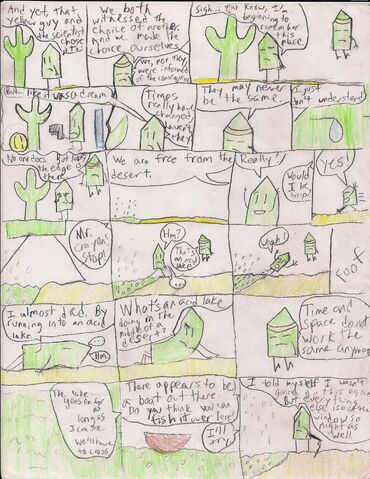 And yet, that
yellow guy and
the scientist
chose
we both
witnessed the
choice of another
And we made the
choice ourselves.
nor they,
were informed
of the consequences
Sigh... You know, I'm
beginning to
remember
this
place.
But...
like it was a dream
Times
really have
changed
haven't
they
They may never
be the same.
I just
don't understand
No one does.
But look,
the edge is
there.
We are free from the
desert.
Really!
Would
I lie
to you?
Yes!
Mr.
Crayon!
Stop!
Hm?
That's
an acid
lake
Woah!
Foof
I almost died. By
running into an acid
lake.
...
Hm.
What's an acid lake
doing in the
middle of a
desert?
...
Time and
space do not
work the
same anymore
The lake
goes on for
as long
as I
can see.
We'll have
to cross
There appears to be
a boat out there
Do you think you can
fish it over here?
I'll
try
I told myself I wasn't
going to do this again
But everything
else is out the
window so
might as
well